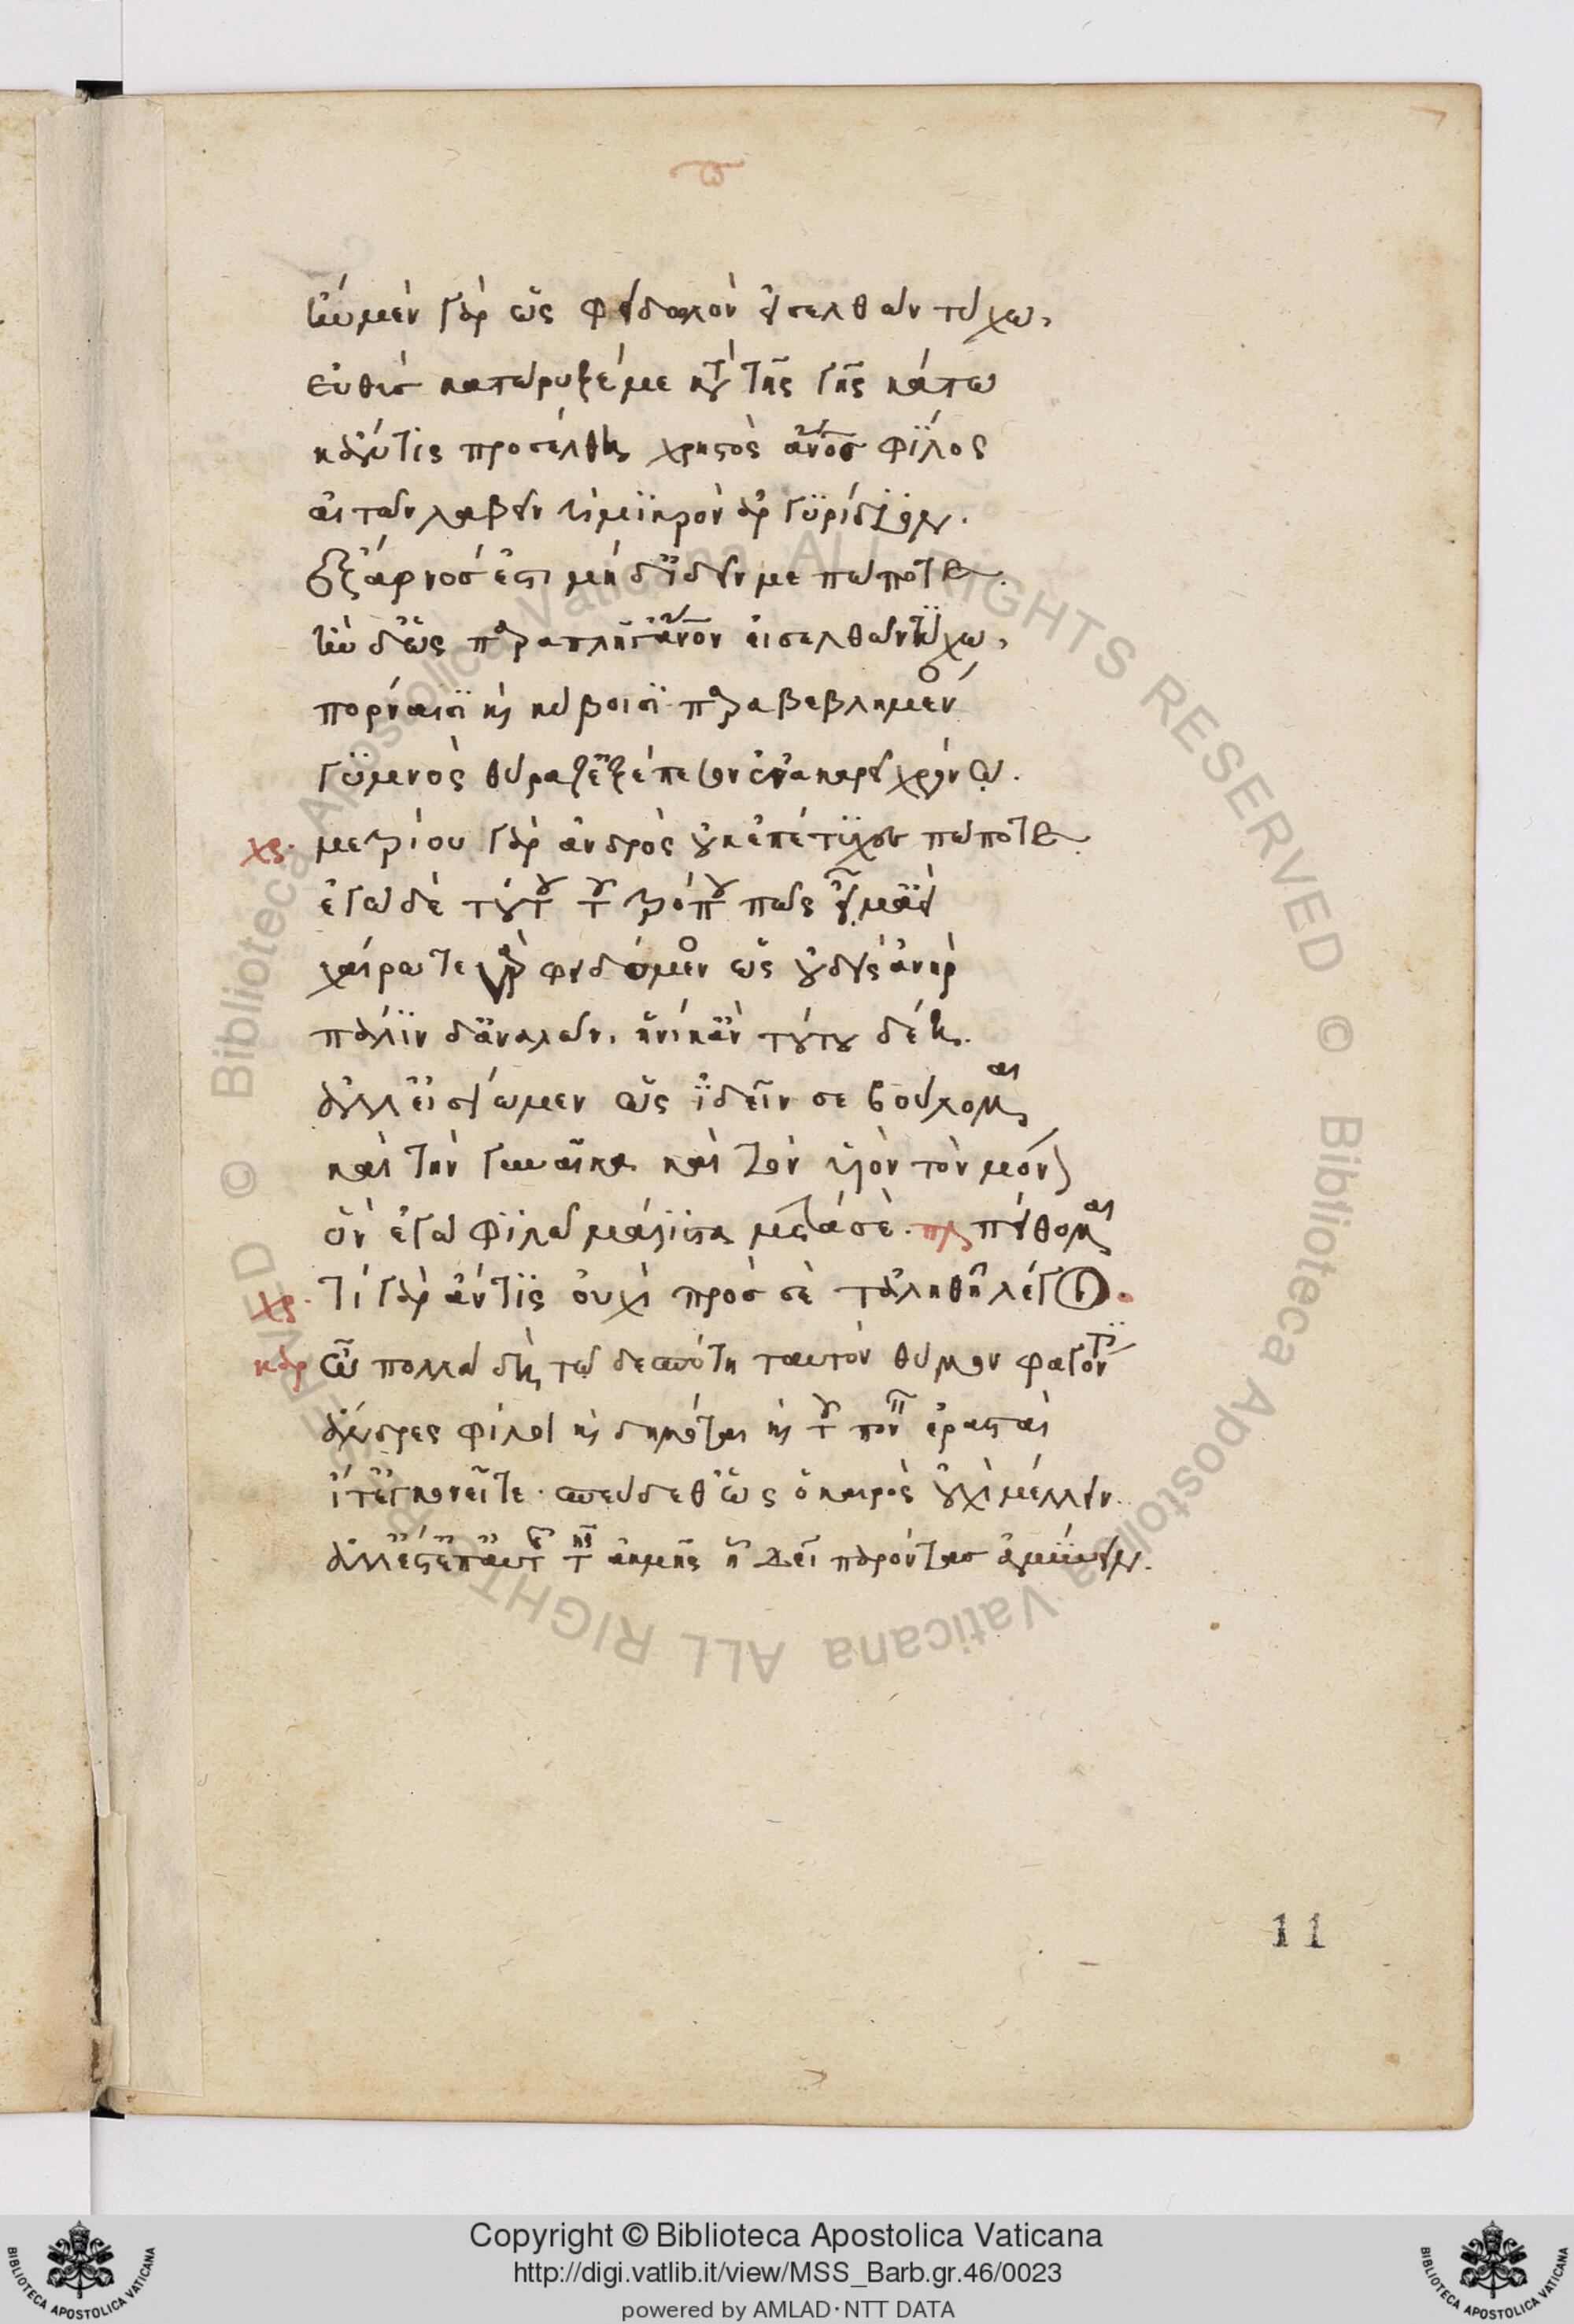 ἢν μὲν γὰρ ὡς φειδωλὸν εἰσελθὼν τύχω,
εὐθὺσ κατώρυξέ με κατὰ τῆς γῆς κάτω
κἄν τίς προσέλθη χρηστὸς ἄνοσ φίλος
αἰτῶν λαβεῖν τι μικρὸν ἀργυρίδιον.
ἔξαρνόσ ἐστι μὴ δ' ἰδεῖν με πώποτε.
ἢν δ' ὡς παραπλῆγ' ἄνον εἰσελθὼν τύχω,
πόρναισι καὶ κύβοισι παραβεβλημένος
γυμνὸς θύραζ' ἐξέπεσον ἐν ἀκαρεῖ χρόνω.
χρ. μετρίου γὰρ ἀνδρὸς οὐκ ἐπέτυχεσ πώποτε.
ἐγὼ δὲ τούτου τοῦ τρόπου πώς εἰμ' ἀεὶ
χαίρω τε γὰρ φειδόμενος ὡς οὐδεὶς ἀνὴρ
πάλιν δ' ἀναλῶν, ἡνίκ' ἂν τούτου δέη.
ἀλλ' εἰσίωμεν ὡς ἰδεῖν σε βούλομαι
καὶ τὴν γυναῖκα καὶ τὸν υἱὸν τὸν μόνον
ὃν ἐγὼ φιλῶ μάλιστα μετὰ σὲ. πλ πείθομαι
χρ. τί γὰρ ἄν τις οὐχὶ πρὸσ σὲ τἀληθῆ λέγοι.
καρ ὦ πολλὰ δὴ τῶ δεσπότη ταυτὸν θύμον φαγόντες
ἄνδρες φίλοι καὶ δημόται καὶ τοῦ πονεῖν ἐρασταὶ
ἴτ' ἐγκονεῖτε. σπεύδεθ' ὡς ὁ καιρὸς οὐχὶ μέλλειν.
ἀλλ' ἔστ' ἐπ' αὐτῆς τῆς ἀκμῆς ἧ δεῖ παρόντασ ἀμύνειν.
11
Copyright © Biblioteca Apostolica Vaticana
http://digi.vatlib.it/view/MSS_Barb.gr.46/0023
powered by AMLAD·NTT DATA